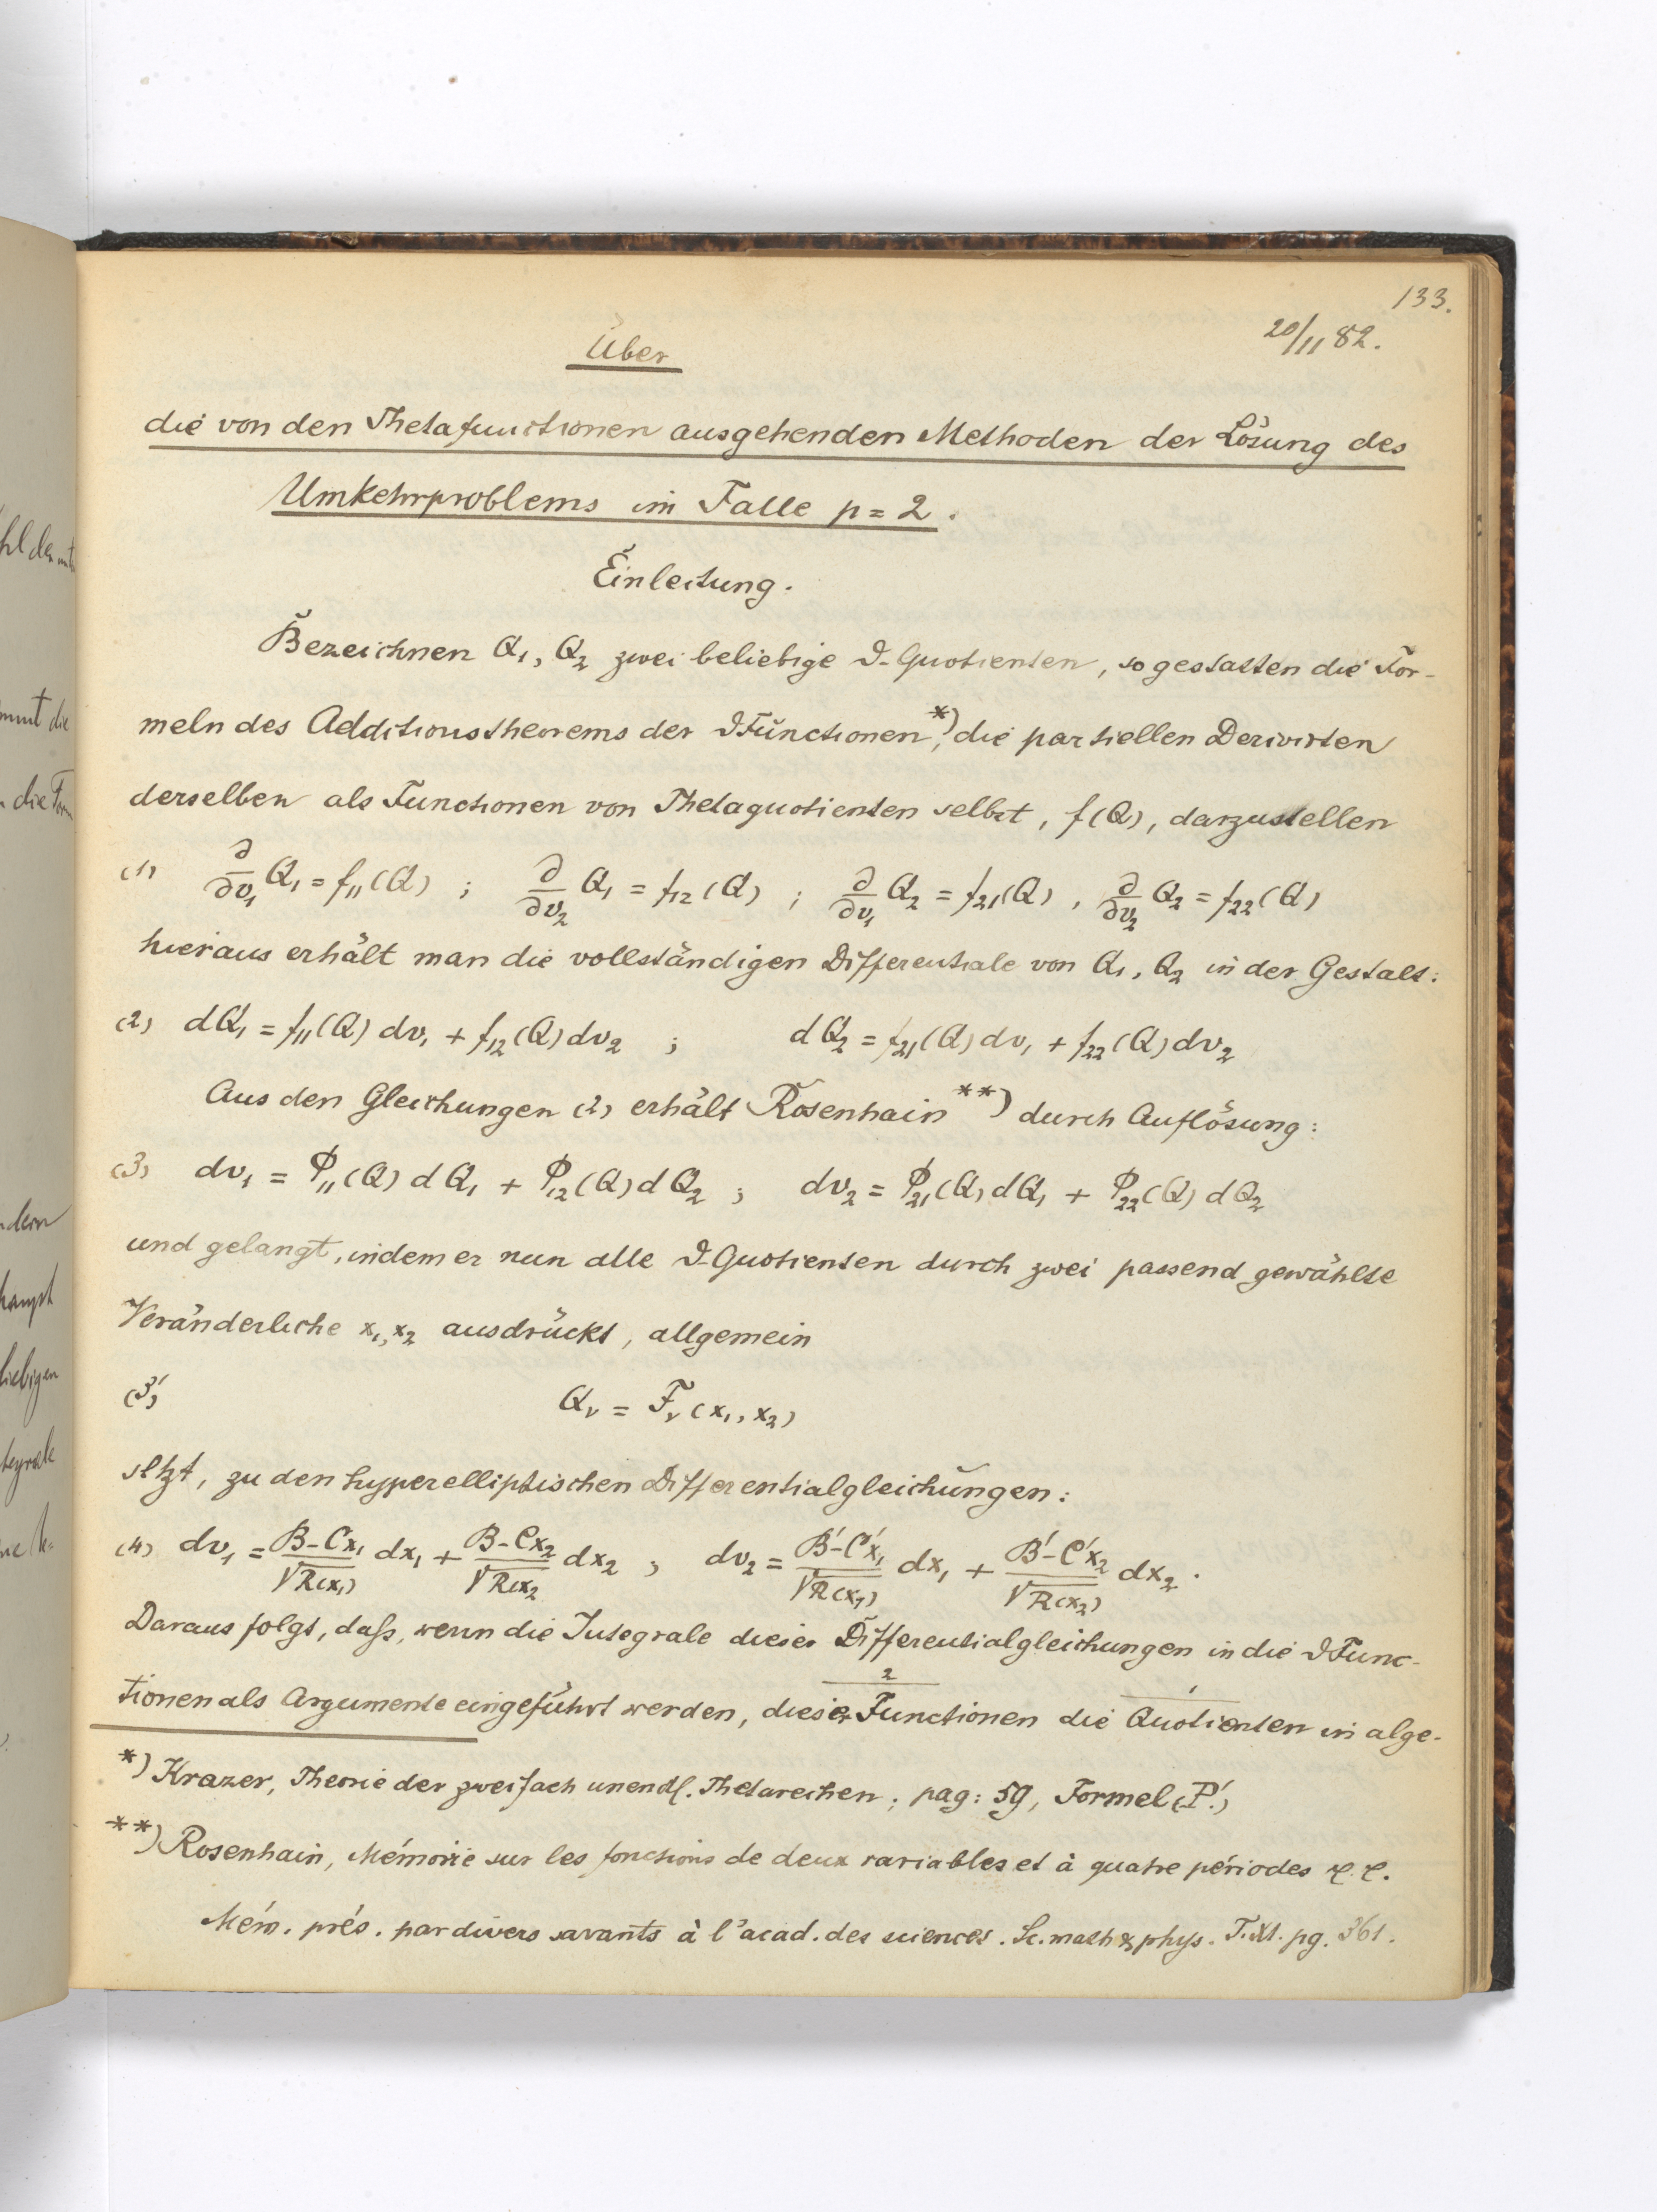 133.
20/11 82.
Über
die von den Thetafunctionen ausgehenden Methoden der Lösung des
Umkehrproblems im Falle p = 2.
Einleitung.
Bezeichnen Q₁, Q₂ zwei beliebige ϑ-Quotienten, so gestatten die For-
meln des Additionstheorems der ϑFunctionen*), die partiellen Derivirten
derselben als Functionen von Thetaquotienten selbst, f(Q), darzustellen
(1) ∂/∂v₁ Q₁ = f₁₁(Q) ; ∂/∂v₂ Q₁ = f₁₂(Q) ; ∂/∂v₁ Q₂ = f₂₁(Q) , ∂/∂v₂ Q₂ = f₂₂(Q)
hieraus erhält man die vollständigen Differentiale von Q₁, Q₂ in der Gestalt:
(2) dQ₁ = f₁₁(Q) dv₁ + f₁₂(Q) dv₂ ; dQ₂ = f₂₁(Q) dv₁ + f₂₂(Q) dv₂
Aus den Gleichungen (2) erhält Rosenhain**) durch Auflösung:
(3) dv₁ = φ₁₁(Q) dQ₁ + φ₁₂(Q) dQ₂ ; dv₂ = φ₂₁(Q) dQ₁ + φ₂₂(Q) dQ₂
und gelangt, indem er nun alle ϑ-Quotienten durch zwei passend gewählte
Veränderliche x₁, x₂ ausdrückt, allgemein
(3') Qᵥ = Fᵥ(x₁, x₂)
setzt, zu den hyperelliptischen Differentialgleichungen:
(4) dv₁ = B-Cx₁/√R(x₁) dx₁ + B-Cx₂/√R(x₂ dx₂ ; dv₂ = B'-C'x₁/√R(x₁) dx₁ + B'-C'x₂/√R(x₂) dx₂.
Daraus folgt, daſs, wenn die Integrale dieser Differentialgleichungen in die ϑFunc-
2 1
tionen als Argumente eingeführt werden, dieser Functionen die Quotienten in alge-
*) Krazer, Theorie der zweifach unendl. Thetareihen; pag: 59, Formel (P'.)
**) Rosenhain, Mémoire sur les fonctions de deux variables et à quatre périodes &c.
Mém. prés. par divers savants à l'acad. des sciences. Sc. math & phys. T. XI. pg. 361.